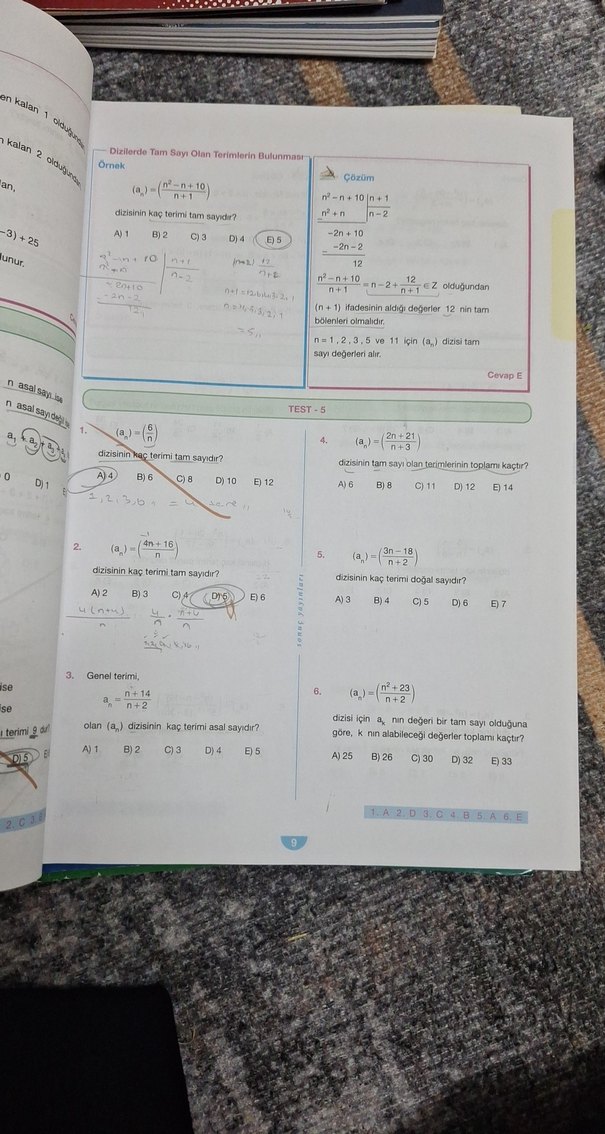 en kalan 1 olduğundan
n kalan 2 olduğundan
lan,
-3) + 25
lunur.
n asal sayı ise
n asal sayı değil ise
a₁ + a₂ + a₃ +
0 D) 1
ise
ise
ı terimi 9 dur?
D) 5
2. C 3.
Dizilerde Tam Sayı Olan Terimlerin Bulunması
Örnek
(aₙ) = ((n² – n + 10)/(n + 1))
dizisinin kaç terimi tam sayıdır?
A) 1 B) 2 C) 3 D) 4 E) 5
n²-n+10 | n+1
n²+n n-2
-2n+10
-2n-2
12
(n-2) 12
= 5
Çözüm
n² – n + 10 | n + 1
n² + n | n – 2
–2n + 10
– –2n – 2
12
(n² – n + 10)/(n + 1) = n – 2 + 12/(n + 1) ∈ Z olduğundan
(n + 1) ifadesinin aldığı değerler 12 nin tam
bölenleri olmalıdır.
n = 1 , 2 , 3 , 5 ve 11 için (aₙ) dizisi tam
sayı değerleri alır.
Cevap E
TEST - 5
1. (aₙ) = (6/n)
dizisinin kaç terimi tam sayıdır?
A) 4 B) 6 C) 8 D) 10 E) 12
1, 2, 3, 6
2. (aₙ) = ((4n + 16)/n)
dizisinin kaç terimi tam sayıdır?
A) 2 B) 3 C) 4 D) 5 E) 6
4(n+4)
n
3. Genel terimi,
aₙ = (n + 14)/(n + 2)
olan (aₙ) dizisinin kaç terimi asal sayıdır?
A) 1 B) 2 C) 3 D) 4 E) 5
sonuç yayınları
4. (aₙ) = ((2n + 21)/(n + 3))
dizisinin tam sayı olan terimlerinin toplamı kaçtır?
A) 6 B) 8 C) 11 D) 12 E) 14
5. (aₙ) = ((3n – 18)/(n + 2))
dizisinin kaç terimi doğal sayıdır?
A) 3 B) 4 C) 5 D) 6 E) 7
6. (aₙ) = ((n² + 23)/(n + 2))
dizisi için aₖ nın değeri bir tam sayı olduğuna
göre, k nın alabileceği değerler toplamı kaçtır?
A) 25 B) 26 C) 30 D) 32 E) 33
1. A 2. D 3. C 4. B 5. A 6. E
9